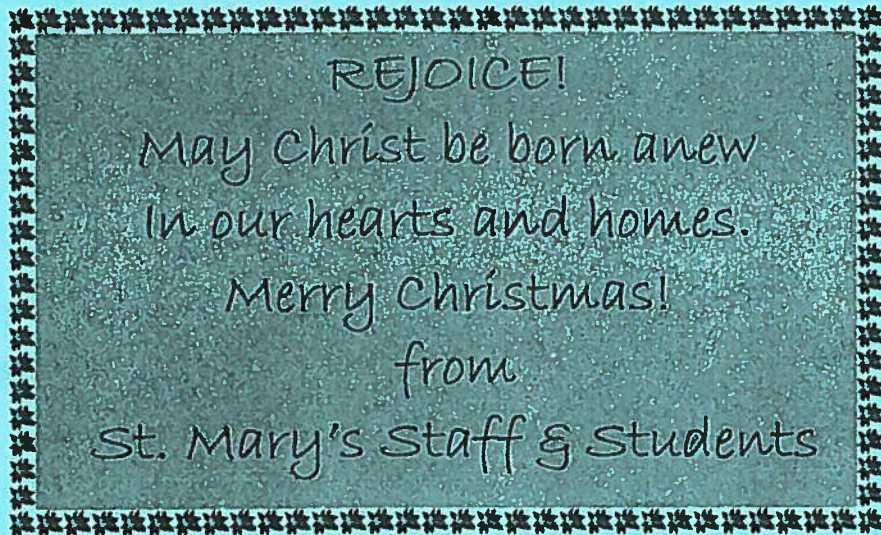 REJOICE!
May Christ be born anew
In our hearts and homes.
Merry Christmas!
from
St. Mary's Staff & Students